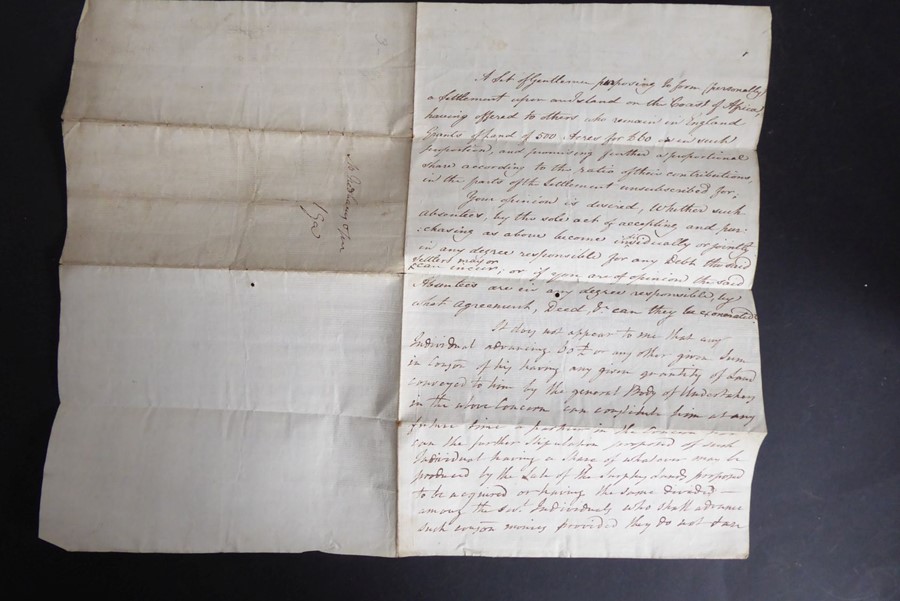 A Set of Gentlemen purposing to form (personally)
a Settlement upon an Island on the Coast of Africa,
having offered to others who remain in England
Grants of Land of 500 Acres for £60 as in such
proportion, and promising further a proportional
share according to the ratio of their contributions,
in the parts of the Settlement unsubscribed for,
Your opinion is desired, Whether such
absentees, by this sole act of accepting and pur-
chasing as above become individually or jointly
in any degree responsible for any Debts the said
Settlers may
incur, or if you are of opinion the said
Absentees are in any degree responsible, by
what Agreement, Deed, &c can they be exonerated.
It does not appear to me that any
Individual advancing or any other given Sum
in Conson of his having any given quantity of Land
conveyed to him by the general Body of Undertakers
in the above Concern can constitute him at any
future time a partner in the Concern nor
can the further Stipulation proposed of such
Individual having a Share of whatever may be
produced by the Sale of the Surplus Lands proposed
to be acquired or having the same divided —
among the sevl Individuals who shall advance
such conson money provided they do not